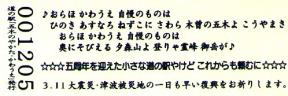 ♪おらほ かわうえ 自慢のものは
ひのき あすなろ ねずこに さわら 木曽の五木よ こうやまき
おらほ かわうえ 自慢のものは
奥にそびえる 夕森山よ 登りゃ霊峰 御岳が♪
☆☆☆五周年を迎えた小さな道の駅やけど これからも頼むに☆☆☆
3.11大震災・津波被災地の一日も早い復興をお祈りします。
00205